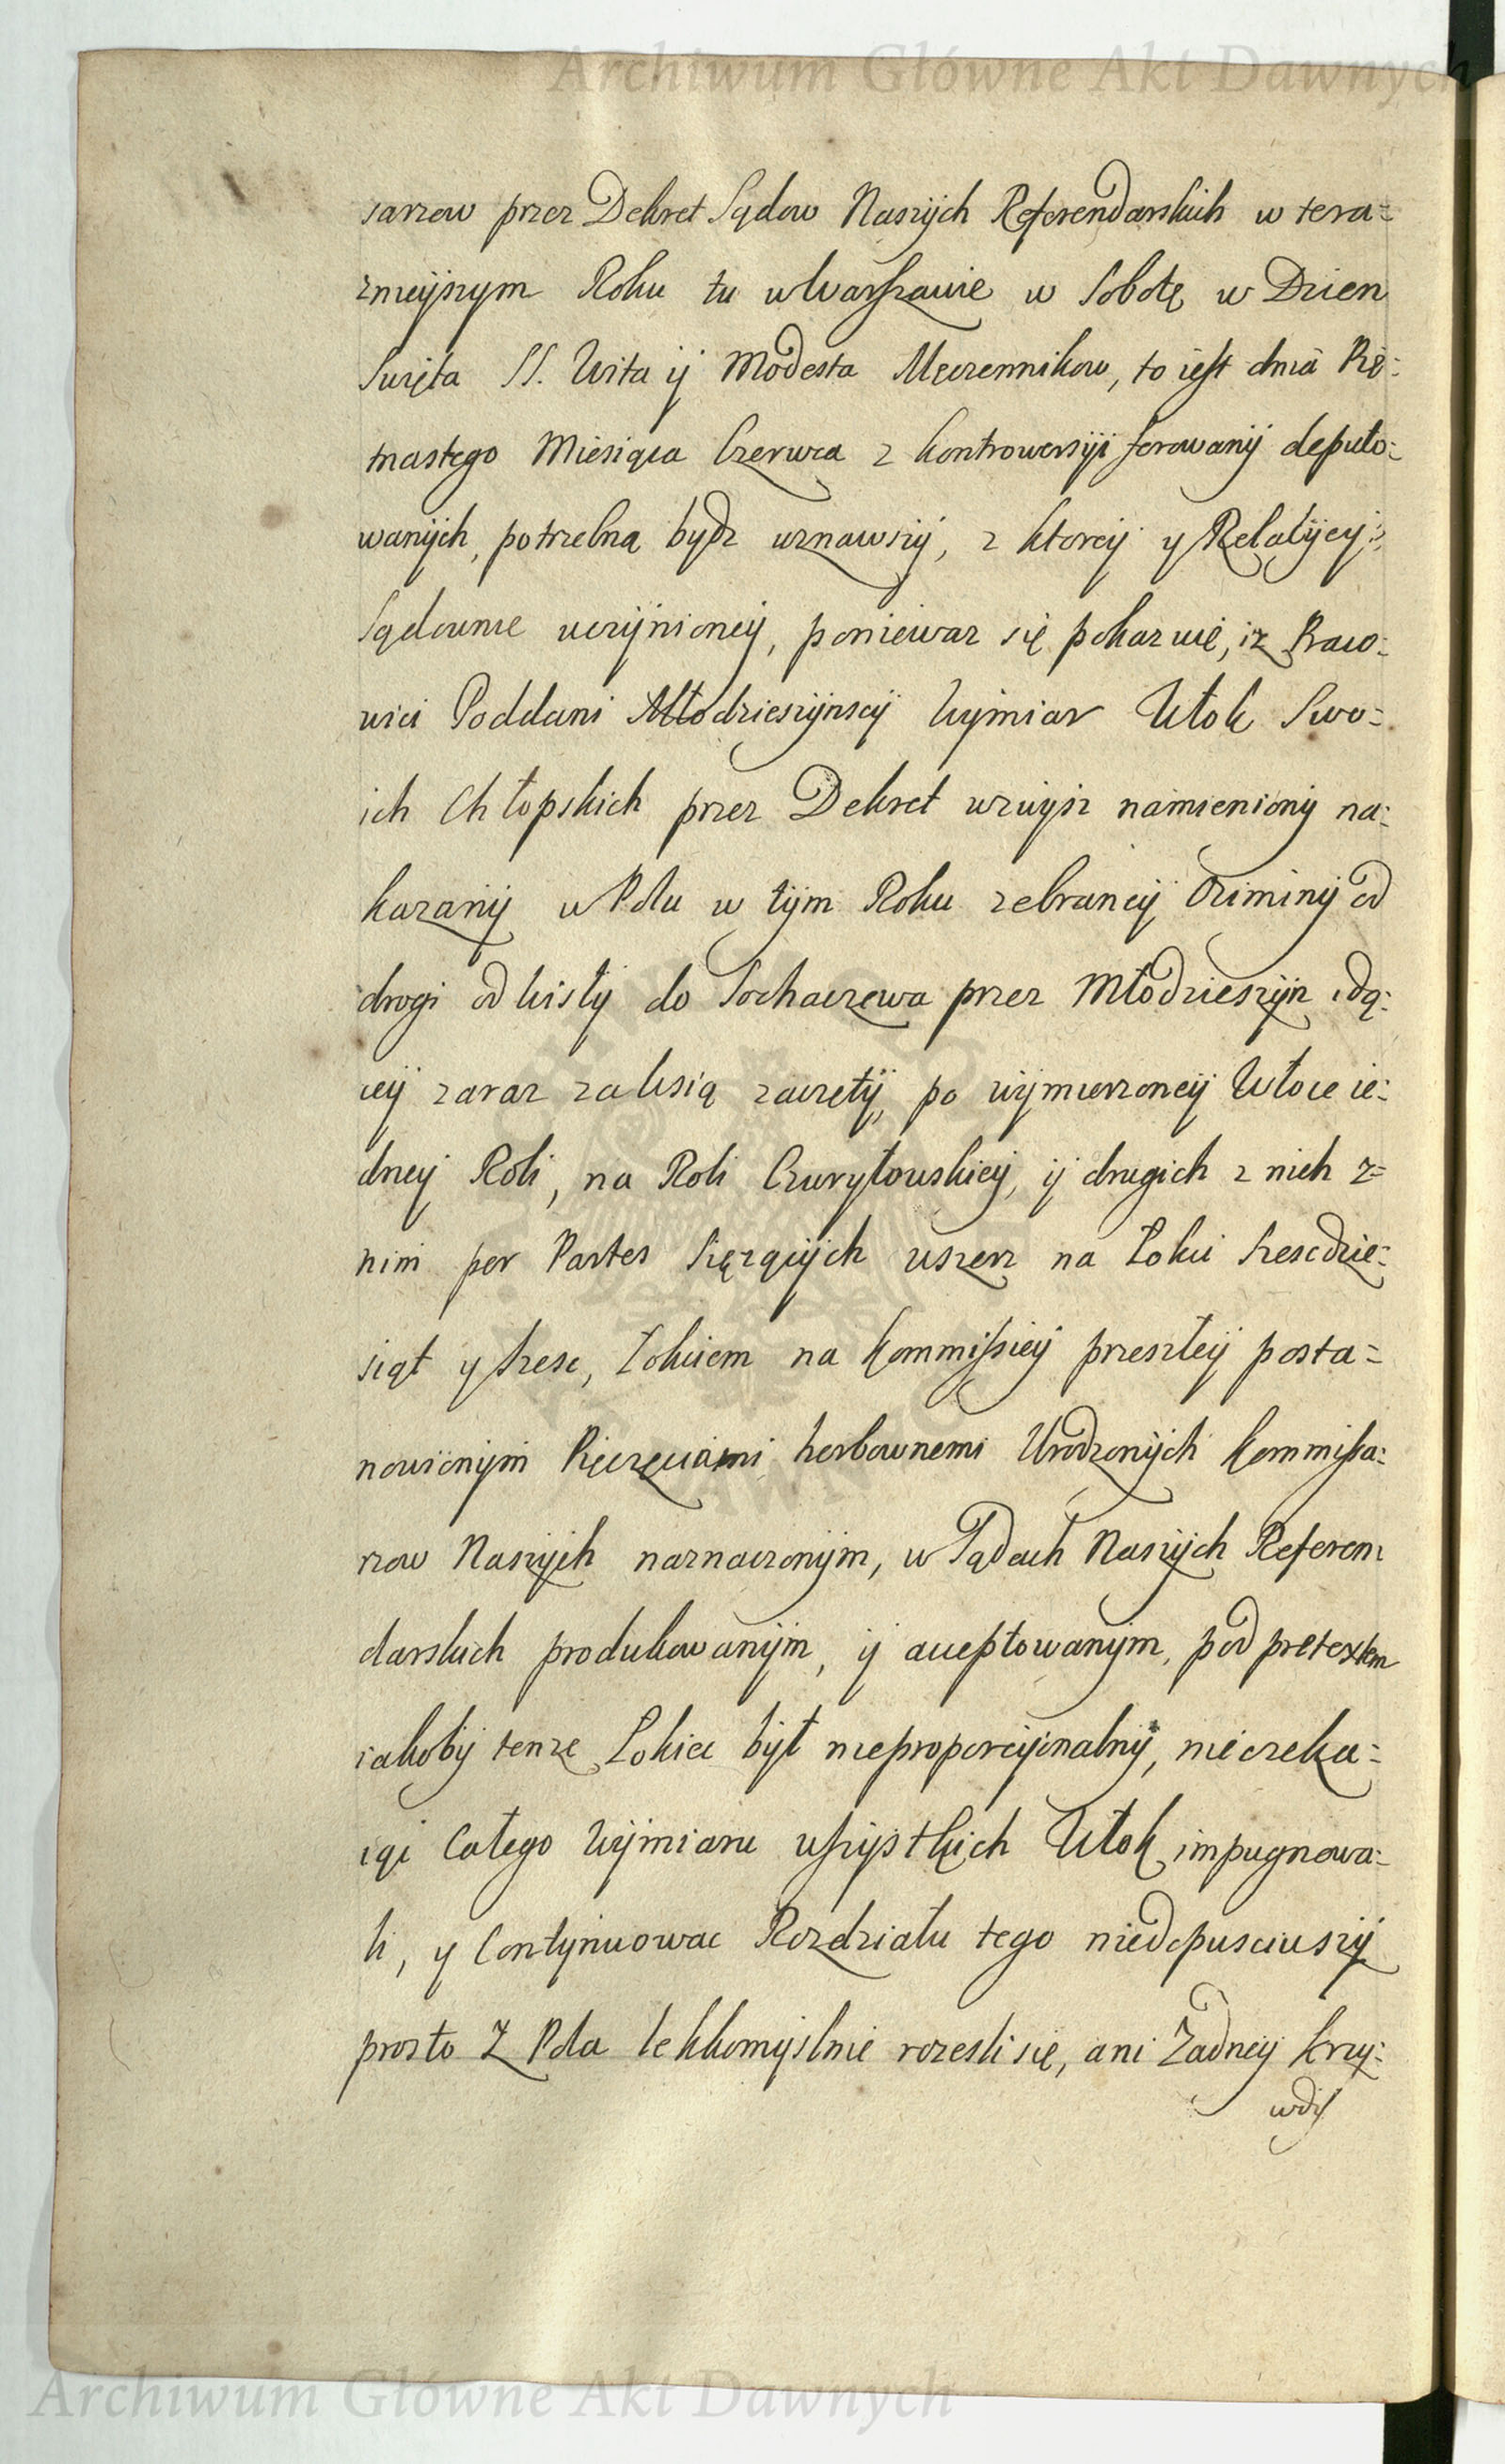 Archiwum Główne Akt Dawnych
sarzow przez Dekret Sądow Naszych Referendarskich w tera=
znieyszym Roku tu w Warszawie w Sobotę w Dzien
Swięta SS. Wita y Modesta Męczennikow, to iest dnia Pię=
tnastego Miesiąca Czerwca z kontrowersyi ferowany deputo=
wanych, potrzebną bydz uznawszy, z ktorey y Relacyey
Sądownie uczynioney, poniewaz się pokazuie, iz Praco=
wici Poddani Młodzieszynscy Wymiar Włok Swo=
ich Chłopskich przez Dekret wzwysz namieniony na=
kazany w Polu w tym Roku zebraney Oziminy od
drogi od Wisły do Sochaczewa przez Młodzieszyn idą=
cey zaraz za Wsią zaczęty, po wymierzoney Włoce ie=
dney Roli, na Roli Czuryłowskiey, y drugich z nich z=
nim per Partes Siężących wszerz na Łokci Szescdzie=
siąt y szesc, Łokciem na Kommissiey przeszłey posta=
nowionym Pieczęciami herbownemi Urodzonych Kommissa=
rzow Naszych naznaczonym, w Sądach Naszych Referen=
darskich produkowanym, y acceptowanym, pod pretextem
iakoby tenze Łokiec był nieproporcyonalny, nieczeka=
iąc Całego Wymiaru wszystkich Włok impugnowa=
li, y Contynuowac Rozdziału tego niedopusciwszy
prosto z Pola lekkomyslnie rozeslisię, ani Zadney krzy=
wdy
Archiwum Główne Akt Dawnych